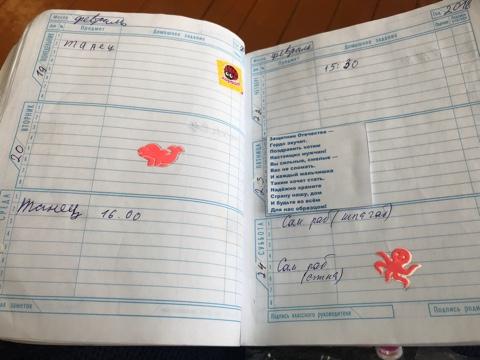 Месяц февраль
Предмет
Домашнее задание
19 ПОНЕДЕЛЬНИК
Танец
20 ВТОРНИК
СРЕДА
Танец 16.00
Месяц февраль
2018
Предмет
Домашнее задание
22 ЧЕТВЕРГ
15:30
23 ПЯТНИЦА
Защитник Отечества —
Гордо звучит.
Поздравить хотим
Настоящих мужчин!
Вы сильные, смелые —
Вас не сломать.
И каждый мальчишка
Таким хочет стать.
Надёжно храните
Страну нашу, дом
И будьте во всём
Для нас образцом!
24 СУББОТА
Сам. раб (шпагат)
Сам. раб
Подпись классного руководителя
Подпись роди